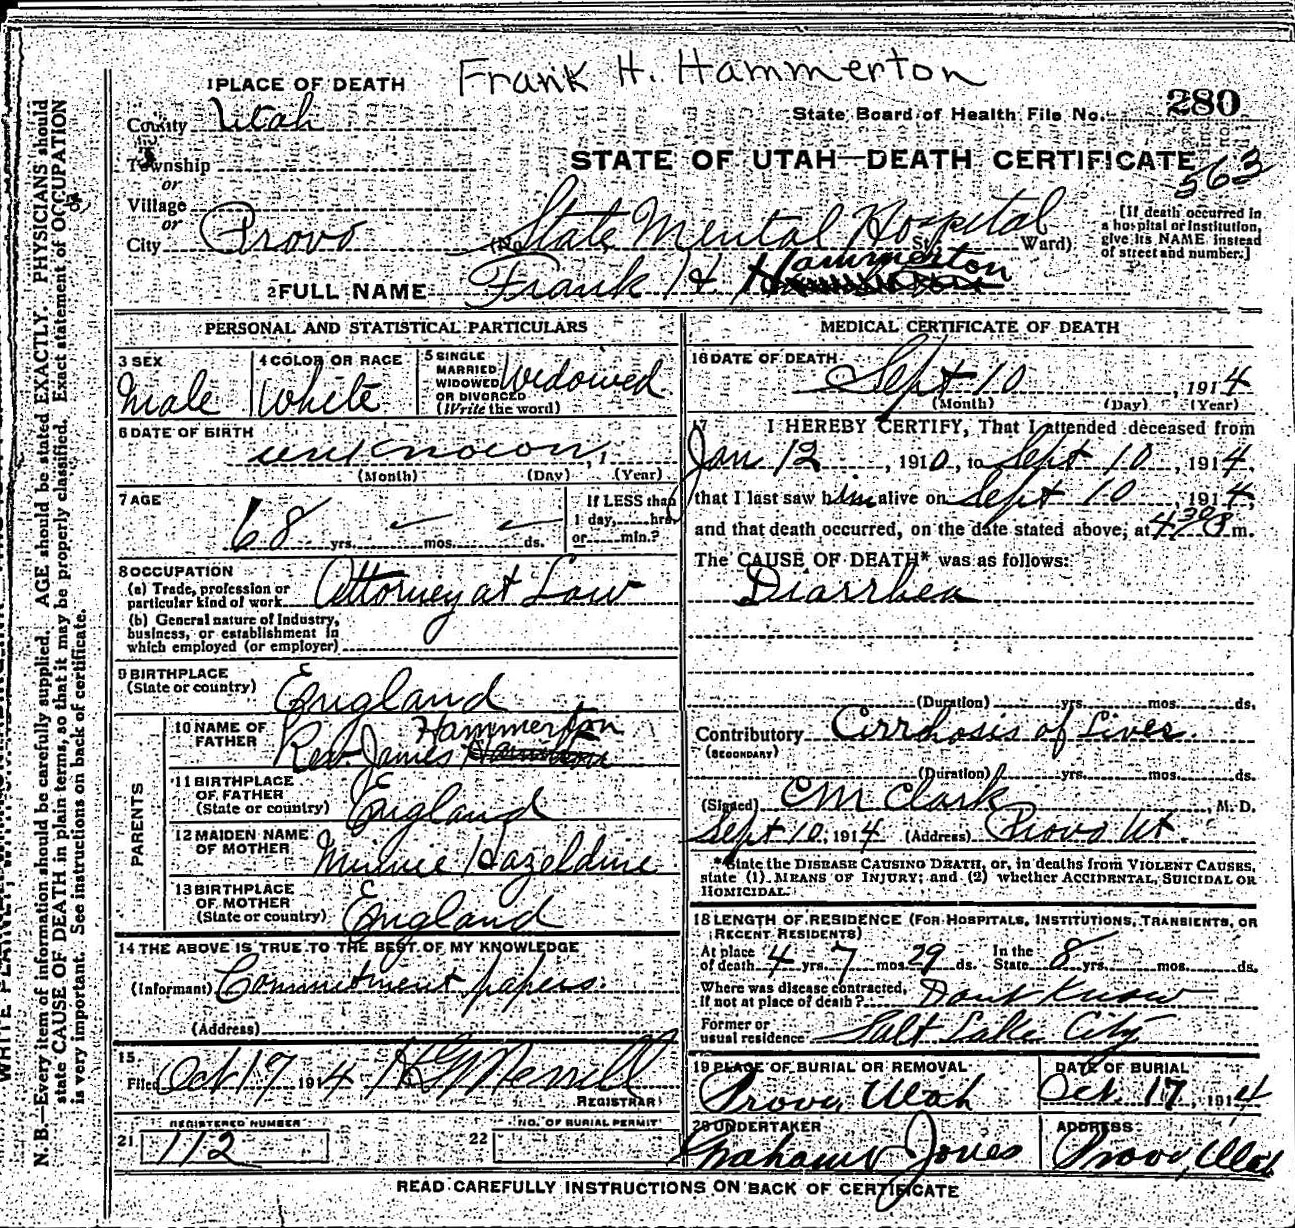 Frank H. Hammerton
1 PLACE OF DEATH
State Board of Health File No. 280
County Utah
STATE OF UTAH—DEATH CERTIFICATE
563
Township
or
Village
or
City Provo (No. State Mental Hospital St. Ward)
[If death occurred in a hospital or institution, give its NAME instead of street and number.]
2 FULL NAME Frank H Hammerton
PERSONAL AND STATISTICAL PARTICULARS
3 SEX
Male
4 COLOR OR RACE
White
5 SINGLE
MARRIED
WIDOWED
OR DIVORCED
(Write the word)
Widowed
6 DATE OF BIRTH
unknown, 1
(Month) (Day) (Year)
7 AGE
68 yrs. mos. ds.
If LESS than
1 day, hrs.
or min.?
8 OCCUPATION
(a) Trade, profession or
particular kind of work Attorney at Law
(b) General nature of Industry,
business, or establishment in
which employed (or employer)
9 BIRTHPLACE
(State or country) England
PARENTS
10 NAME OF
FATHER Rev James Hammerton
11 BIRTHPLACE
OF FATHER
(State or country) England
12 MAIDEN NAME
OF MOTHER Minnie Hazeldine
13 BIRTHPLACE
OF MOTHER
(State or country) England
14 THE ABOVE IS TRUE TO THE BEST OF MY KNOWLEDGE
(Informant) Commitment papers.
(Address)
15
Filed Oct 17 1914 H G Merrill
REGISTRAR
REGISTERED NUMBER
21 112
NO. OF BURIAL PERMIT
22
MEDICAL CERTIFICATE OF DEATH
16 DATE OF DEATH
Sept 10, 1914
(Month) (Day) (Year)
17 I HEREBY CERTIFY, That I attended deceased from
Jan 12, 1910, to Sept 10, 1914,
that I last saw him alive on Sept 10 1914,
and that death occurred, on the date stated above, at 4 30 P m.
The CAUSE OF DEATH* was as follows:
Diarrhea
(Duration) yrs. mos. ds.
Contributory Cirrhosis of Liver.
(SECONDARY)
(Duration) yrs. mos. ds.
(Signed) CM Clark, M. D.
Sept 10, 1914 (Address) Provo Ut.
*State the DISEASE CAUSING DEATH, or, in deaths from VIOLENT CAUSES,
state (1) MEANS OF INJURY; and (2) whether ACCIDENTAL, SUICIDAL OR
HOMICIDAL.
18 LENGTH OF RESIDENCE (FOR HOSPITALS, INSTITUTIONS, TRANSIENTS, OR
RECENT RESIDENTS)
At place
of death 4 yrs. 7 mos. 29 ds. In the
State 8 yrs. mos. ds.
Where was disease contracted,
if not at place of death? Dont Know
Former or
usual residence Salt Lake City
19 PLACE OF BURIAL OR REMOVAL
Provo, Utah
DATE OF BURIAL
Oct. 17, 1914
20 UNDERTAKER
Jones
ADDRESS
Provo, Utah
READ CAREFULLY INSTRUCTIONS ON BACK OF CERTIFICATE
N. B.—Every item of information should be carefully supplied. AGE should be stated EXACTLY. PHYSICIANS should
state CAUSE OF DEATH in plain terms, so that it may be properly classified. Exact statement of OCCUPATION
is very important. See instructions on back of certificate.